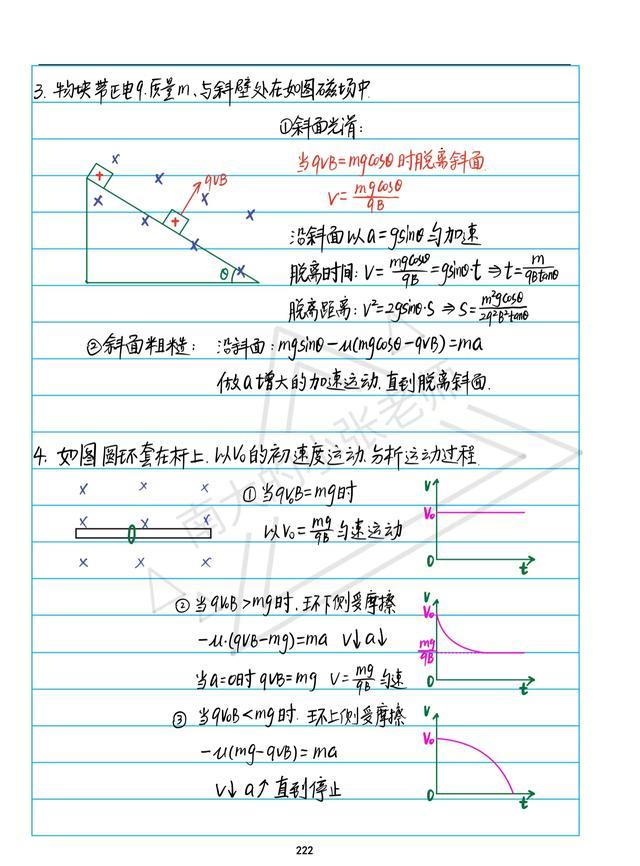 3. 物块带正电q.质量m、与斜壁处在如图磁场中
①斜面光滑:
当qvB=mgcosθ时脱离斜面
V=mgcosθ/qB
qVB
θ
沿斜面以a=gsinθ匀加速
脱离时间: V=mgcosθ/qB=gsinθ·t ⇒ t=m/qBtanθ
脱离距离: V²=2gsinθ·S ⇒ S=m²gcosθ/2q²B²tanθ
②斜面粗糙: 沿斜面:mgsinθ-μ(mgcosθ-qVB)=ma
做a增大的加速运动.直到脱离斜面.
4. 如图圆环套在杆上.以V₀的初速度运动.分析运动过程.
①当qV₀B=mg时
以V₀=mg/qB匀速运动
V
V₀
0
t
②当qV₀B>mg时.环下侧受摩擦
-μ·(qVB-mg)=ma V↓a↓
当a=0时 qVB=mg V=mg/qB匀速
V
V₀
mg/qB
0
t
③ 当qV₀B<mg时.环上侧受摩擦
-μ(mg-qVB)=ma
V↓ a↑ 直到停止
V
V₀
0
t
南大的小张老师
222